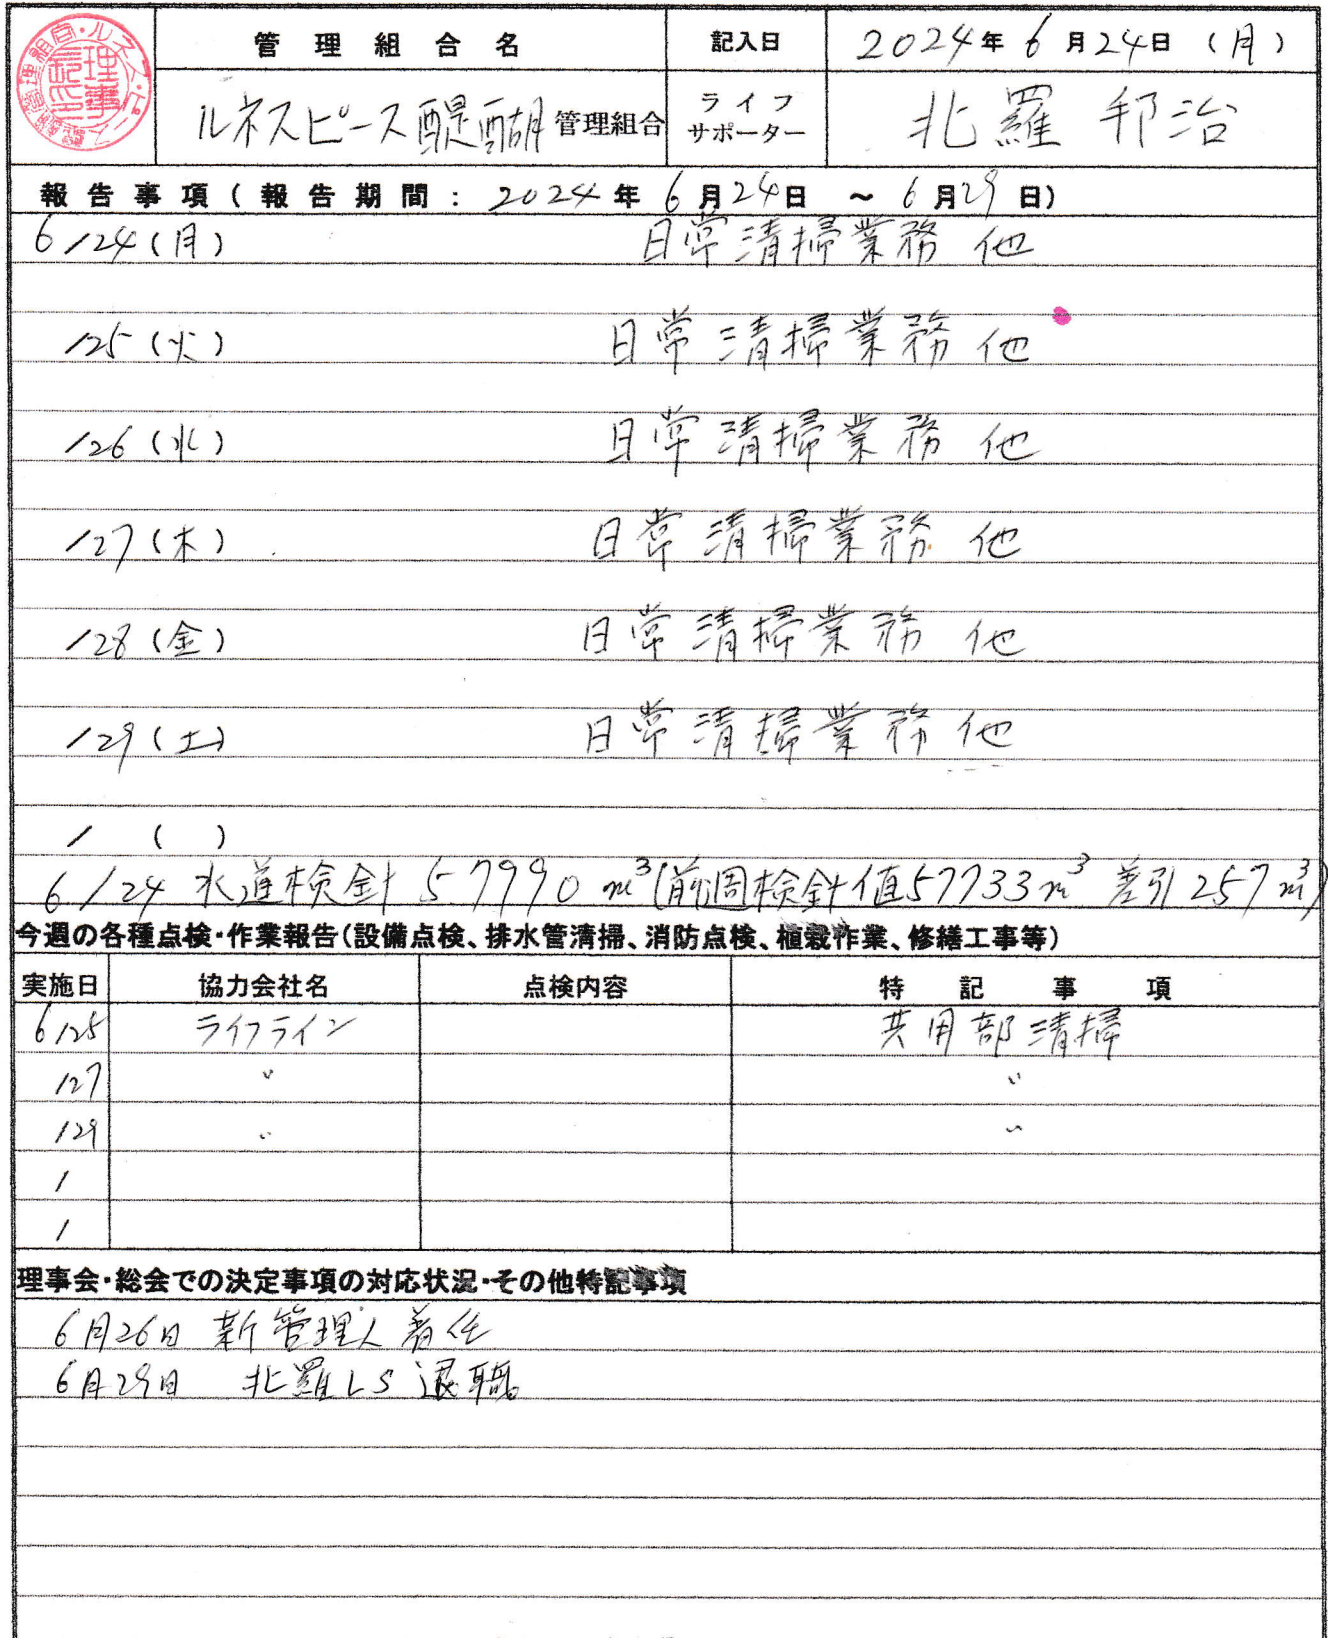 管理組合名 記入日 2024年6月24日(月)
ルネスピース醍醐管理組合 ライフサポーター 北羅 邦治
報告事項(報告期間:2024年6月24日~6月29日)
6/24(月) 日常清掃業務 他
/25(火) 日常清掃業務 他
/26(水) 日常清掃業務 他
/27(木) 日常清掃業務 他
/28(金) 日常清掃業務 他
/29(土) 日常清掃業務 他
/ ( )
6/24 水道検針 57990 m³(前週検針値57733m³ 差引257m³)
今週の各種点検・作業報告(設備点検、排水管清掃、消防点検、植栽作業、修繕工事等)
実施日 協力会社名 点検内容 特記事項
6/25 ライフライン 共用部清掃
/27 〃 〃
/29 〃 〃
/
/
理事会・総会での決定事項の対応状況・その他特記事項
6月26日 新管理人着任
6月29日 北羅LS退職